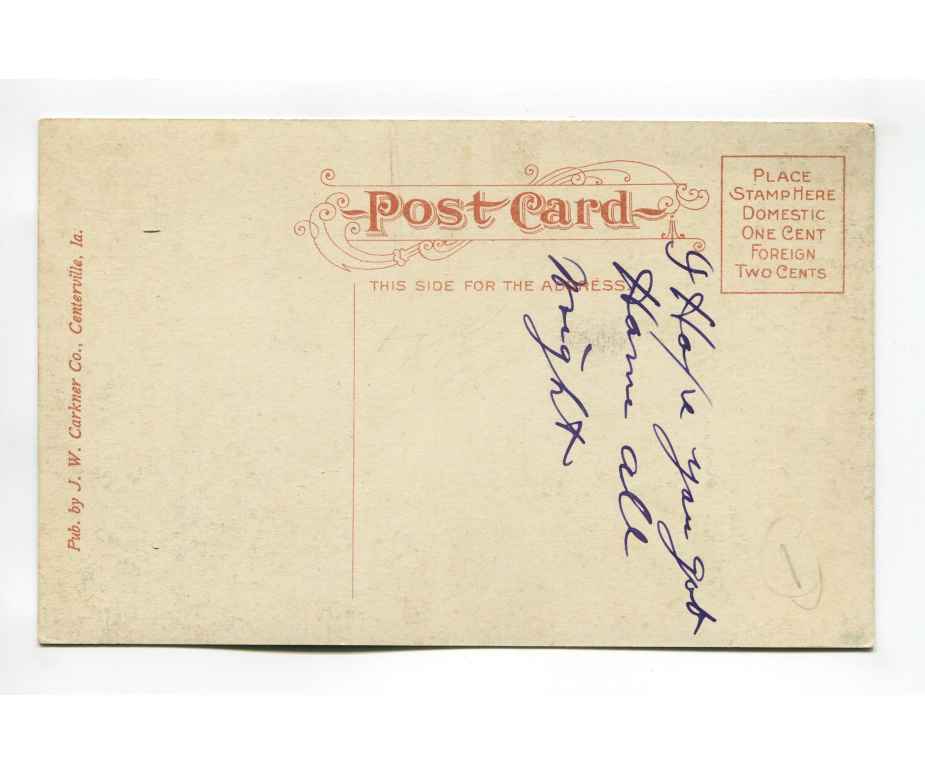 Post Card
THIS SIDE FOR THE ADDRESS.
PLACE
STAMP HERE
DOMESTIC
ONE CENT
FOREIGN
TWO CENTS
Pub. by J. W. Carkner Co., Centerville, Ia.
I Hope you got
Home all
Wright